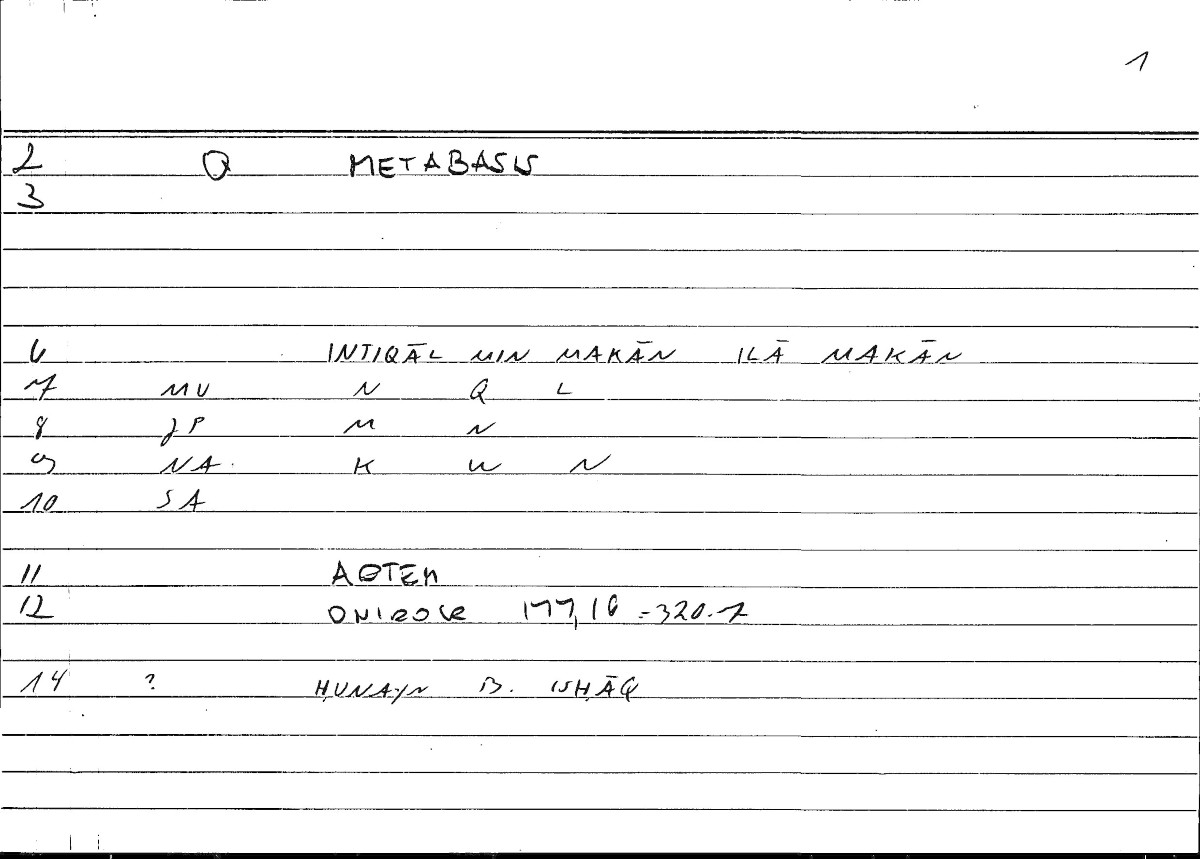 1
2 Q METABASIS
3
6 INTIQĀL MIN MAKĀN ILĀ MAKĀN
7 MU N Q L
8 JP M N
9 NA. K W N
10 SA
11 AΘTEM
12 ONIROCR 177,16 =320.7
14 ? ḤUNAYN B. ISḤĀQ